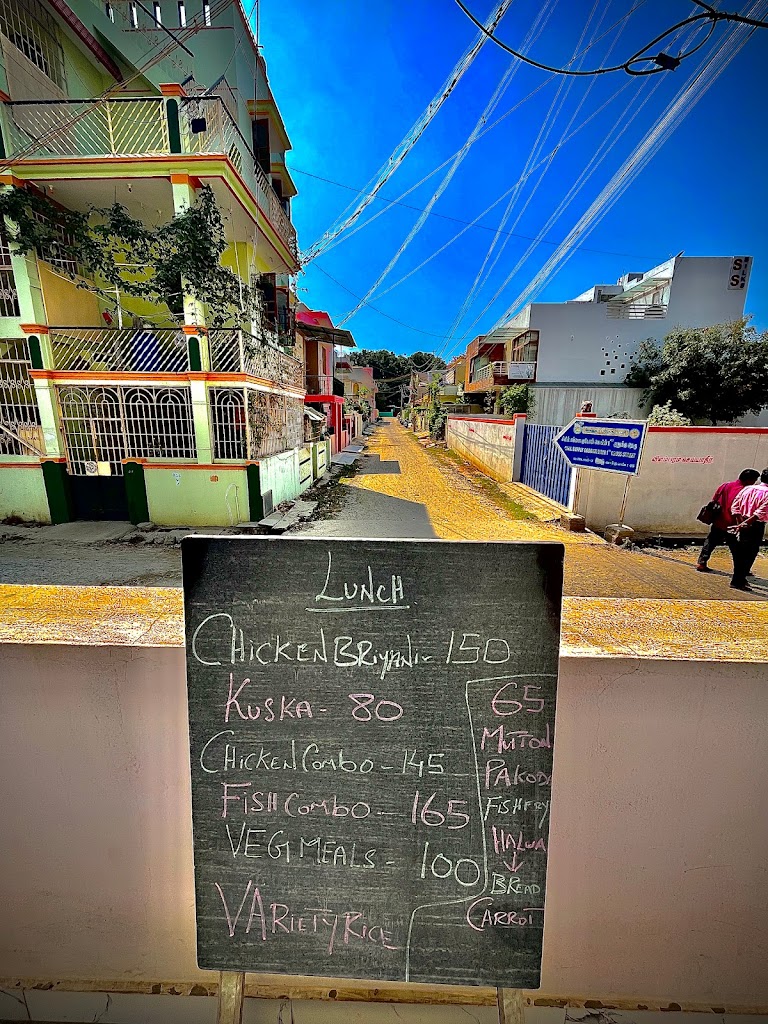 SLS
LUNCH
CHICKEN BRIYANI - 150
KUSKA - 80
CHICKEN COMBO - 145
FISH COMBO - 165
VEG MEALS - 100
VARIETY RICE
65
MUTTON
PAKODA
FISH FRY
HALWA
↓
BREAD
CARROT